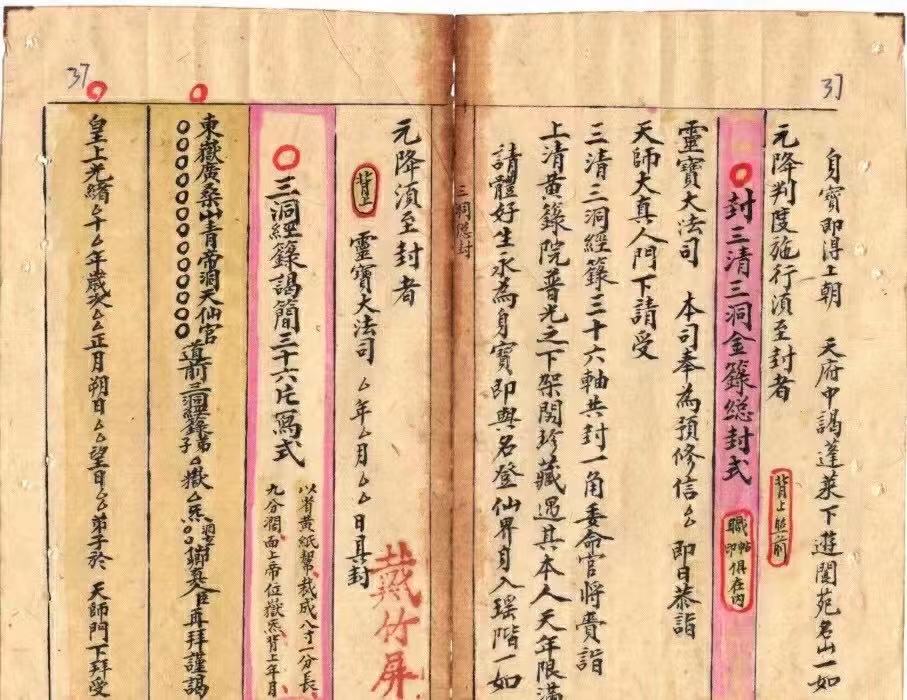 37
身寶即得上朝　天府中謁蓬萊下遊閬苑名山一如
元降判度施行須至封者
背上照前
封三清三洞金籙總封式
職帖印俱在內
靈寶大法司　本司奉為預修信厶　即日恭詣
天師大真人門下請受
三清三洞經籙三十六軸共封一角委命官將賫詣
上清黃籙院普光之下架閣珍藏遇其本人天年限滿
請體好生永為身寶即與名登仙界身入瑤階一如
三洞總封
37
元降須至封者
背上
靈寶大法司　厶年厶月厶厶日具封
戴竹屏
三洞經籙謁簡三十六片寫式
以者黃紙幫裁成八寸一分長
九分濶面上帝位嶽炁背上年月
東嶽廣桑山青帝洞天仙官
道前三洞經籙弟子厶嶽厶炁
真人臣再拜謹謁
皇上光緒厶十厶年歲次厶厶正月朔日厶厶望日厶弟子於　天師門下拜受